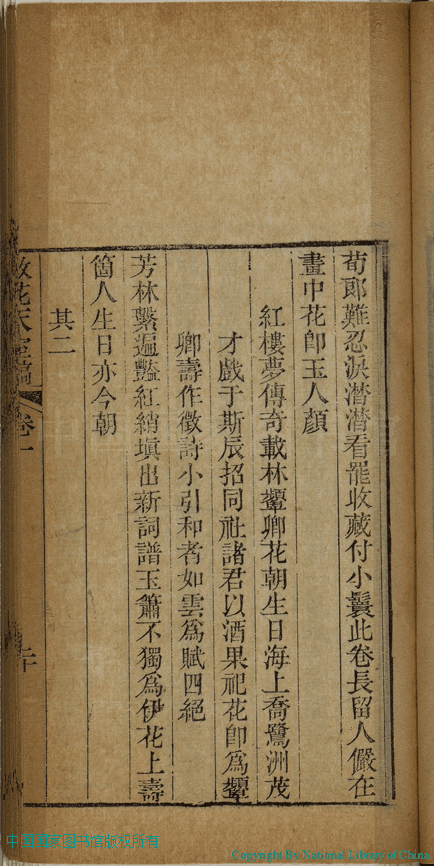 荀郎難忍淚潸潸看罷收藏付小鬟此卷長留人儼在
畫中花卽玉人顏
紅樓夢傳奇載林顰卿花朝生日海上喬鷺洲茂
才戲于斯辰招同社諸君以酒果祀花卽爲顰
卿壽作徵詩小引和者如雲爲賦四絕
芳林繫遍豔紅綃塡出新詞譜玉簫不獨爲伊花上壽
箇人生日亦今朝
其二
散花天室稿 卷一 二十
Copyright By National Library of China